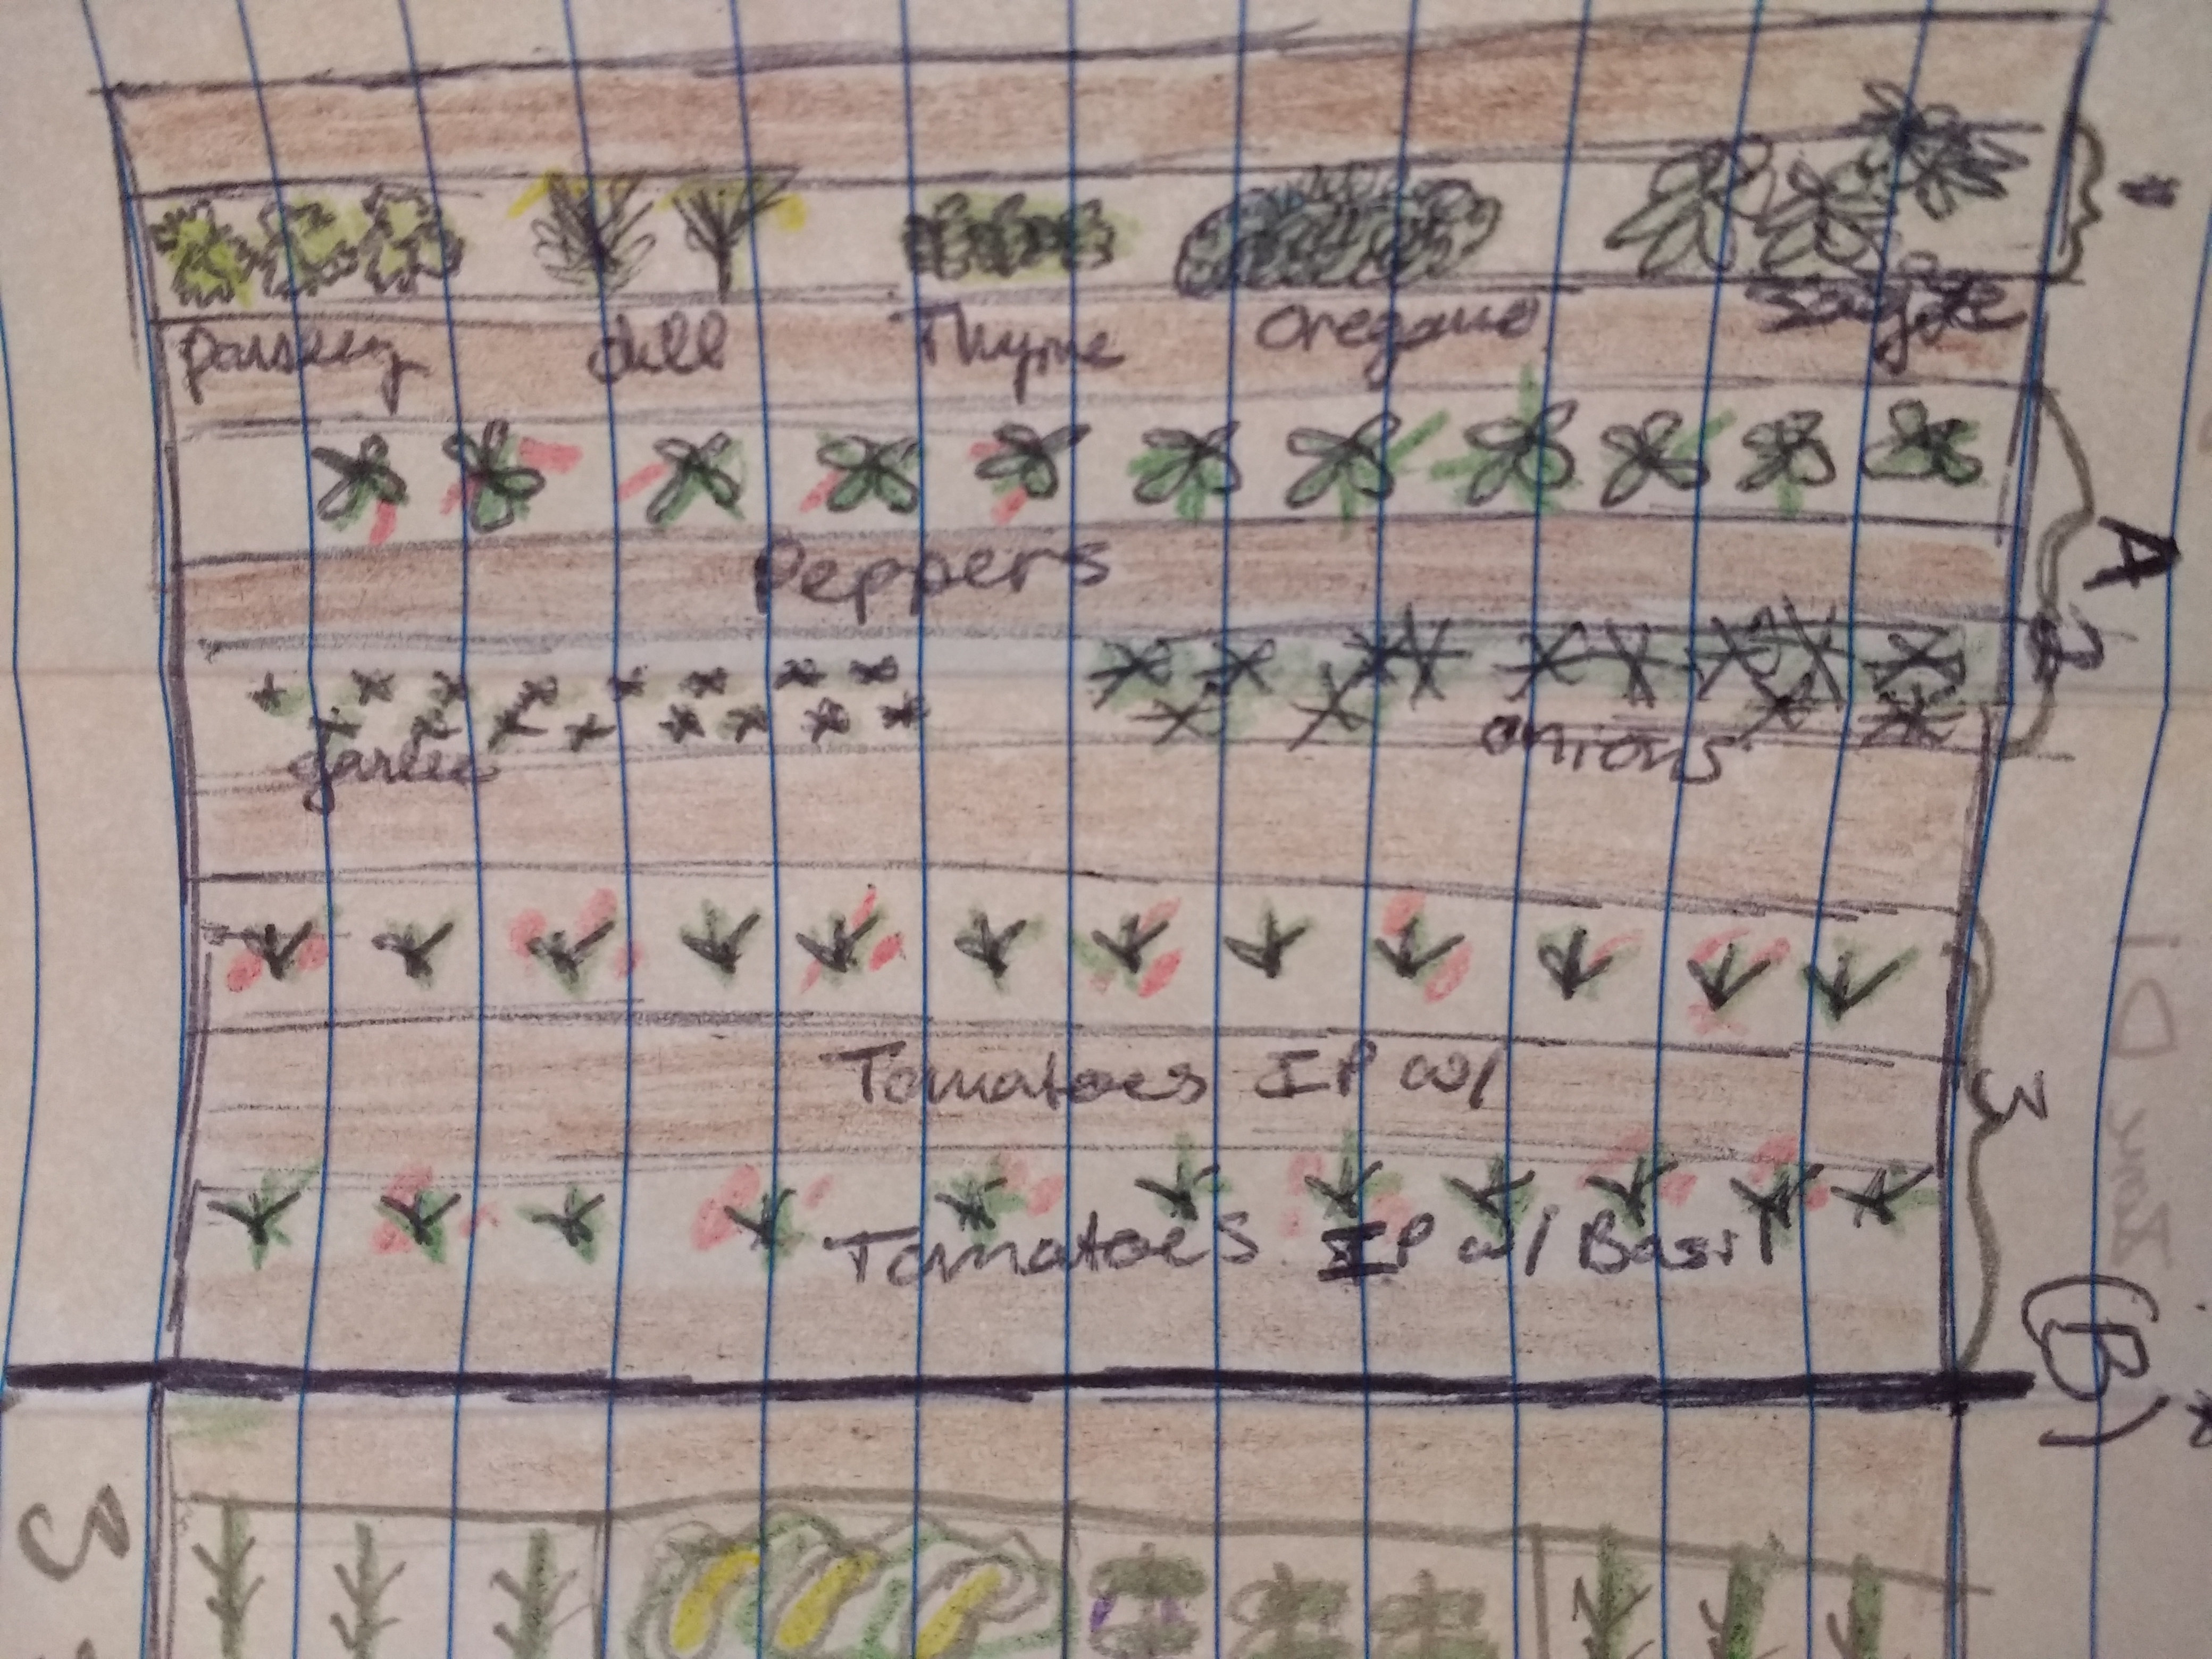 parsley dill Thyme oregano sage
Peppers
A
2
garlic onions
Tomatoes IP w/
3
Tomatoes IP w/ Basil
(B)